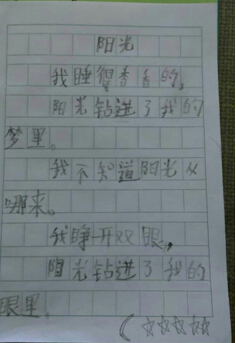 阳光
我睡得香香的。
阳光钻进了我的
梦里。
我不知道阳光从
哪来。
我睁开双眼，
阳光钻进了我的
眼里。
（☆☆☆☆☆